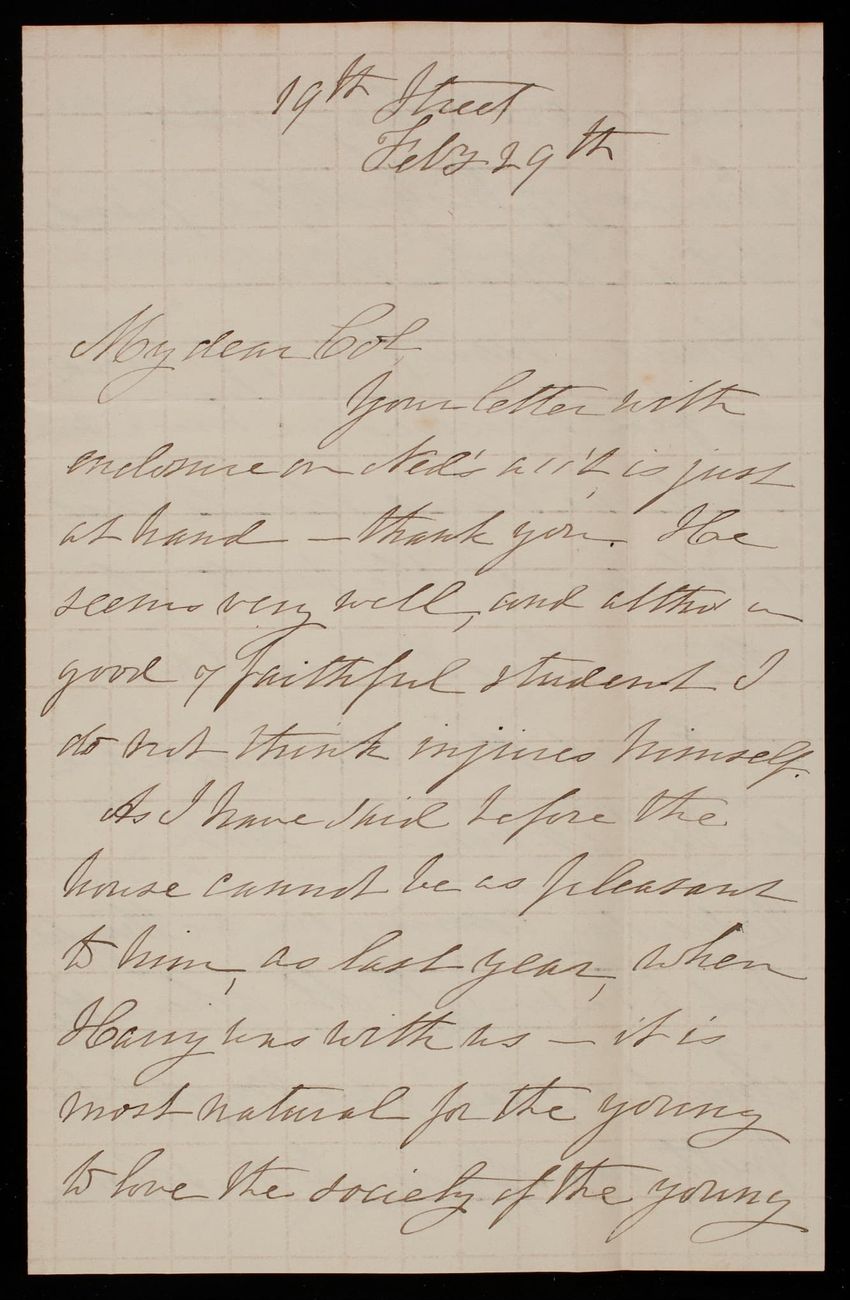 19th Street
Feby 29th
My dear Col,
Your letter with
enclosure on Ned's acc't, is just
at hand — thank you. He
seems very well, and altho' a
good & faithful student I
do not think injures himself.
As I have said before the
house cannot be as pleasant
to him, as last year, when
Harry was with us — it is
most natural for the young
to love the society of the young